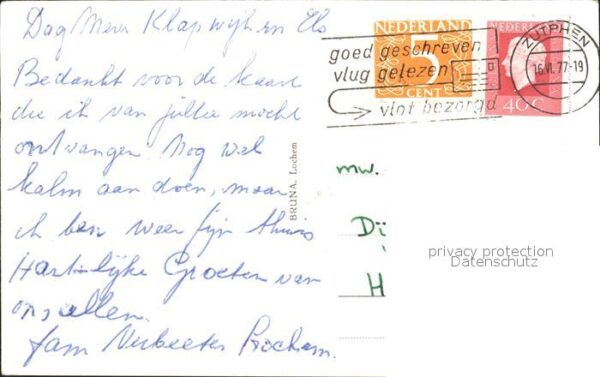 Dag Mevr Klapwijk en Els
Bedankt voor de kaart
die ik van jullie mocht
ontvangen. Nog wel
kalm aan doen, maar
ik ben weer fijn thuis
Hartelijke Groeten van
ons allen.
fam Verbeeter
BRUNA, Lochem
NEDERLAND
5
CENT
NEDERL
40C
goed geschreven
vlug gelezen
vlot bezorgd
ZUTPHEN
16.VI.77-19
mw.
Di
H
privacy protection
Datenschutz